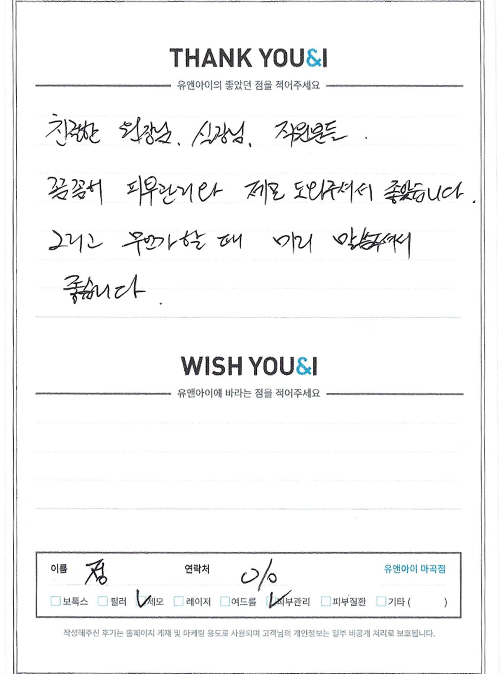 THANK YOU&I
유앤아이의 좋았던 점을 적어주세요
친절한 원장님, 실장님, 직원분들.
꼼꼼히 피부관리와 제모 도와주셔서 좋았습니다.
그리고 무언가 할 때 미리 말씀주셔서
좋습니다.
WISH YOU&I
유앤아이에 바라는 점을 적어주세요
이름 정 연락처 010 유앤아이 마곡점
보톡스 필러 제모 레이저 여드름 피부관리 피부질환 기타 ( )
작성해주신 후기는 홈페이지 게재 및 마케팅 용도로 사용되며 고객님의 개인정보는 일부 비공개 처리로 보호됩니다.